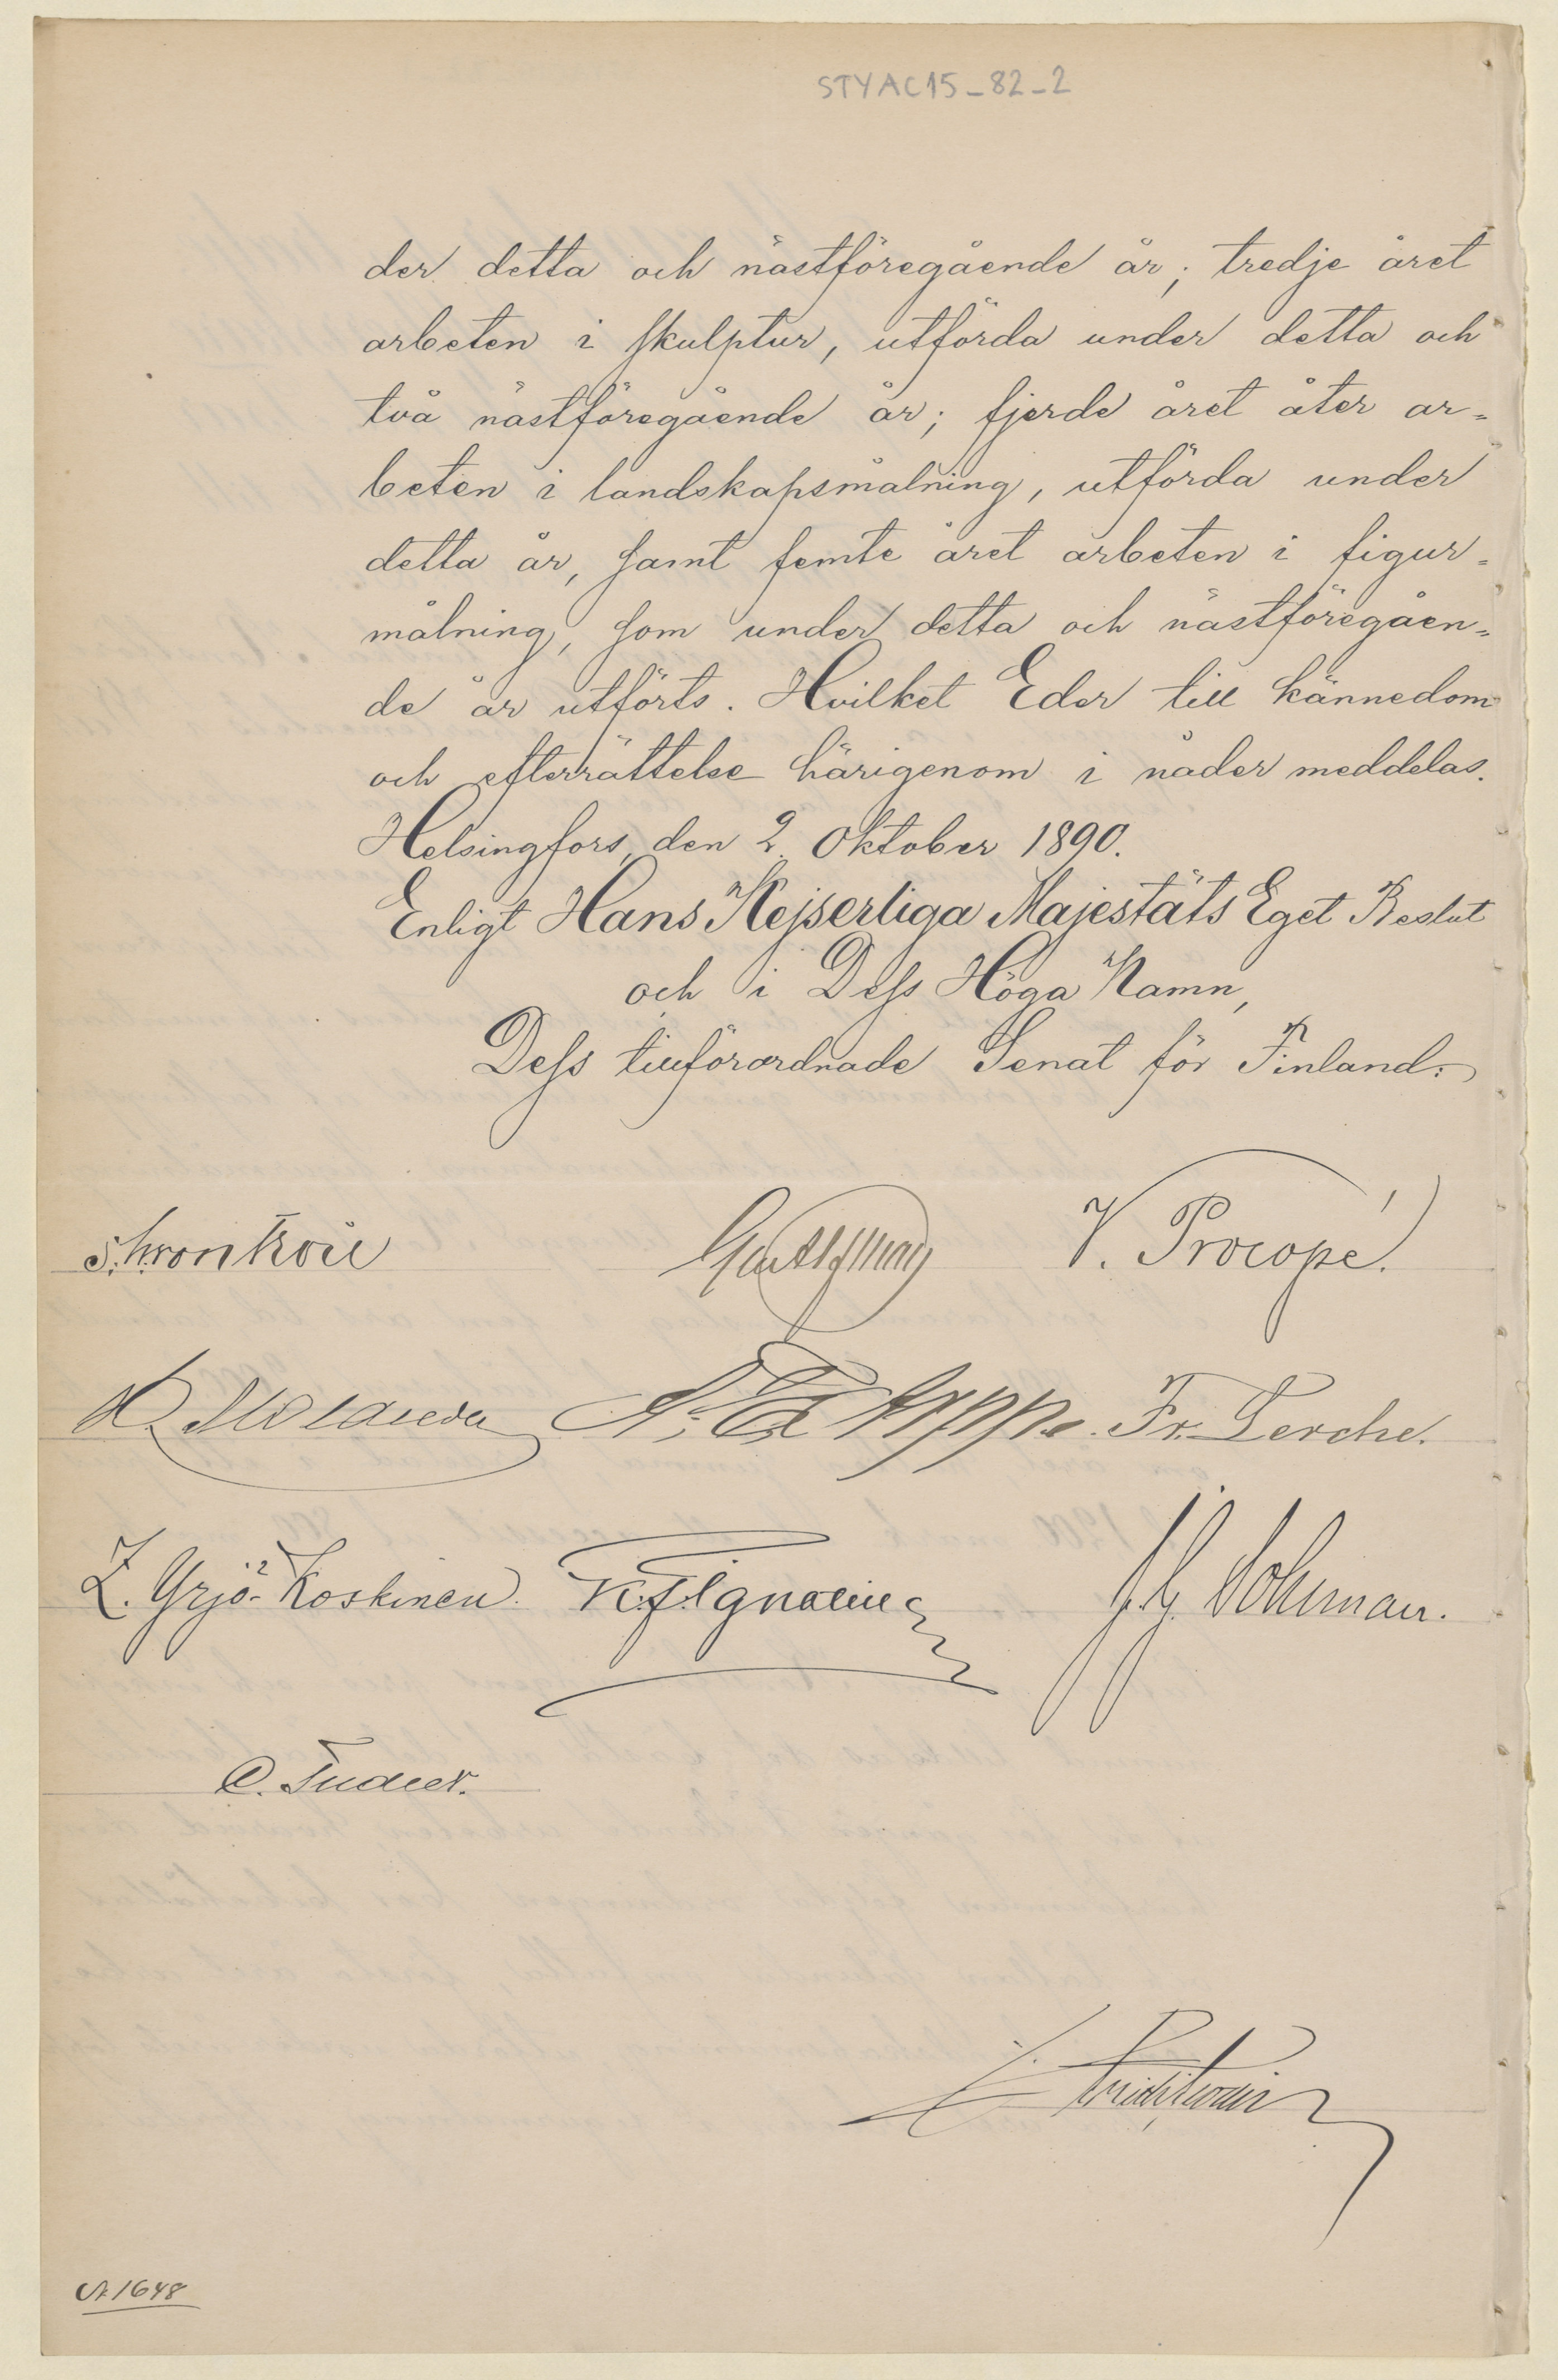 STYAC15_82_2
der detta och nästföregående år; tredje året
arbeten i skulptur, utförda under detta och
två nästföregående år; fjerde året åter ar=
beten i landskapsmålning, utförda under
detta år, samt femte året arbeten i figur=
målning, som under detta och nästföregåen=
de år utförts. Hvilket Eder till kännedom
och efterrättelse härigenom i nåder meddelas.
Helsingfors, den 2 Oktober 1890.
Enligt Hans Kejserliga Majestäts Eget Beslut
och i Dess Höga Namn,
Dess tillförordnade Senat för Finland:
V. Procopé.
Fr. Lerche.
Z. Yrjö-Koskinen. K.F. Ignatius
C. Tudeer.
1648